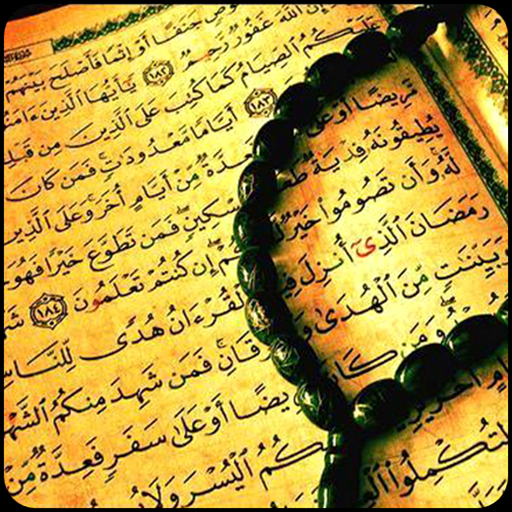 وصٍ جَنَفًا أَوْ إِثْمًا فَأَصْلَحَ بَيْنَهُمْ
إِنَّ ٱللَّهَ غَفُورٌ رَّحِيمٌ ١٨٢ يَٰٓأَيُّهَا ٱلَّذِينَ ءَامَنُ
عَلَيْكُمُ ٱلصِّيَامُ كَمَا كُتِبَ عَلَى ٱلَّذِينَ مِن قَبْلِ
١٨٣ أَيَّامًا مَّعْدُودَٰتٍ فَمَن كَانَ
مَّرِيضًا أَوْ عَلَىٰ عِدَّةٌ مِّنْ أَيَّامٍ أُخَرَ وَعَلَى ٱلَّذِينَ
يُطِيقُونَهُۥ فِدْيَةٌ طَعَا مِسْكِينٍ فَمَن تَطَوَّعَ خَيْرًا فَهُوَ
لَّهُۥ وَأَن تَصُومُوا۟ خَيْرٌ لَّكُمْ إِن كُنتُمْ تَعْلَمُونَ ١٨٤ شَ
رَمَضَانَ ٱلَّذِىٓ أُنزِلَ فِي ٱلْقُرْءَانُ هُدًى لِّلنَّاسِ
وَبَيِّنَٰتٍ مِّنَ ٱلْهُدَىٰ وَ قَانِ فَمَن شَهِدَ مِنكُمُ ٱلشَّهْ
وَمَن كَانَ مَرِيضًا أَوْ عَلَىٰ سَفَرٍ فَعِدَّةٌ مِّنْ
امٍ أُخَرَ يُرِي كُمُ ٱلْيُسْرَ وَلَا يُ
لِتُكْمِلُوا۟ ٱلْعِ